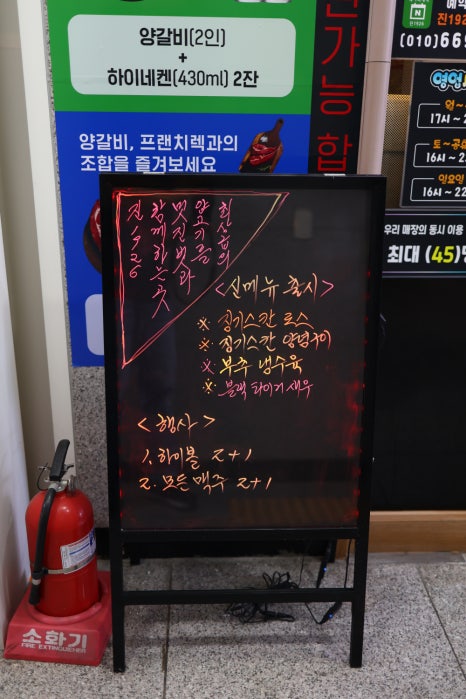 양갈비(2인)
+
하이네켄(430ml) 2잔
양갈비, 프랜치렉과의
조합을 즐겨보세요
가능 합
N
예약
진192
(010)66
영업
월~
17시~2
토~공휴
16시~2
일요일
16시~22
우리 매장의 동시 이용
최대 (45)명
최상급의
양고기를
멋진 벗과
함께하는 곳
진1926
<신메뉴 출시>
※ 징기스칸 로스
※ 징기스칸 양념구이
※ 부추 냉수육
※ 블랙 타이거 새우
<행사>
1. 하이볼 2+1
2. 모든 맥주 2+1
소화기
FIRE EXTINGUISHER